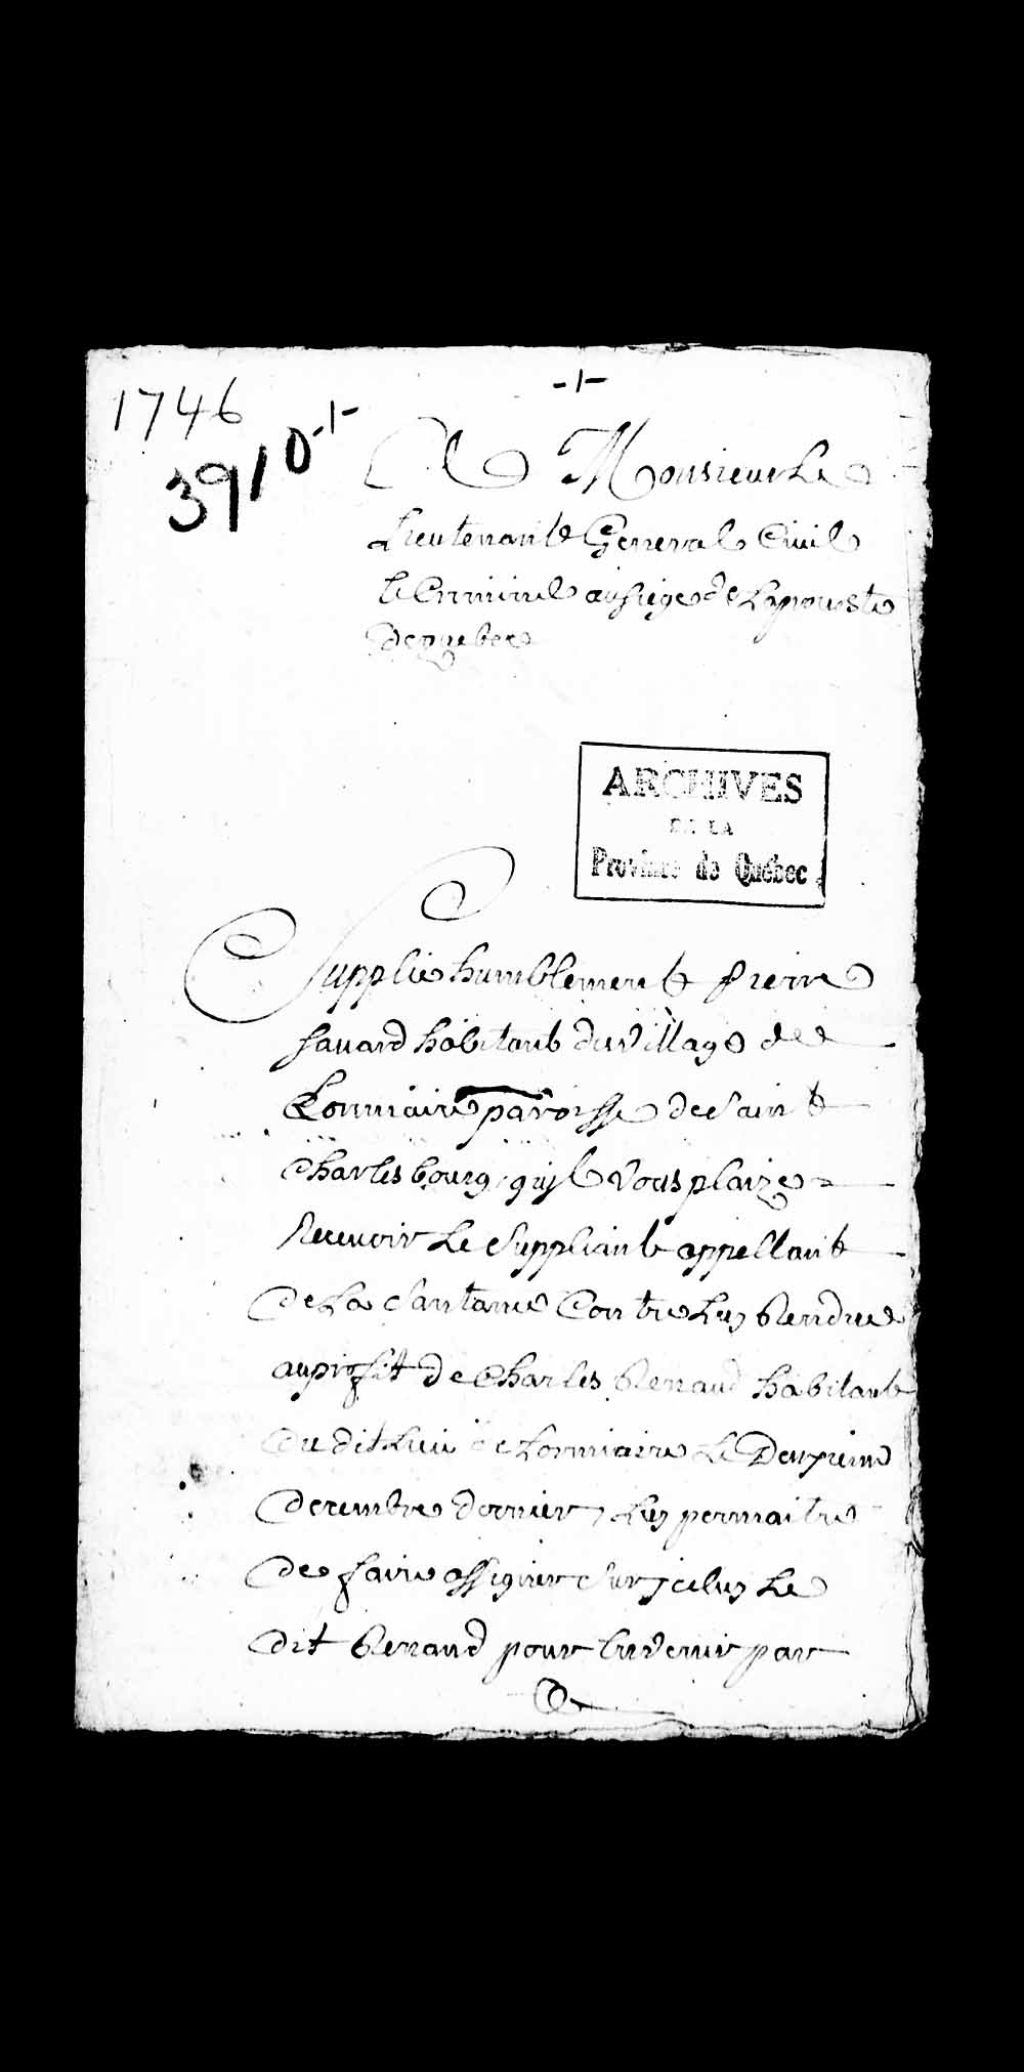 1746
-1-
3910-1-
A Monsieur Le
Lieutenante General Civil
Et Criminel au siege de La prouoste
de quebec
ARCHIVES
DE LA
Province de Québec
Supplie humblement pierre
sauard habitant du village de
Lormiaire paroisse de Saint
Charlesbourg, quil vous plaize =
Receuoir Le Suppliant appellant
de La Santance Contre Luy Rendue
au profit de Charles Renaud habitant
du dit Lieu de Lormiaire Le Deuxieme
decembre dernier, Luy permaitre
de faire assigner sur jceluy Le
dit Renaud pour En venir par